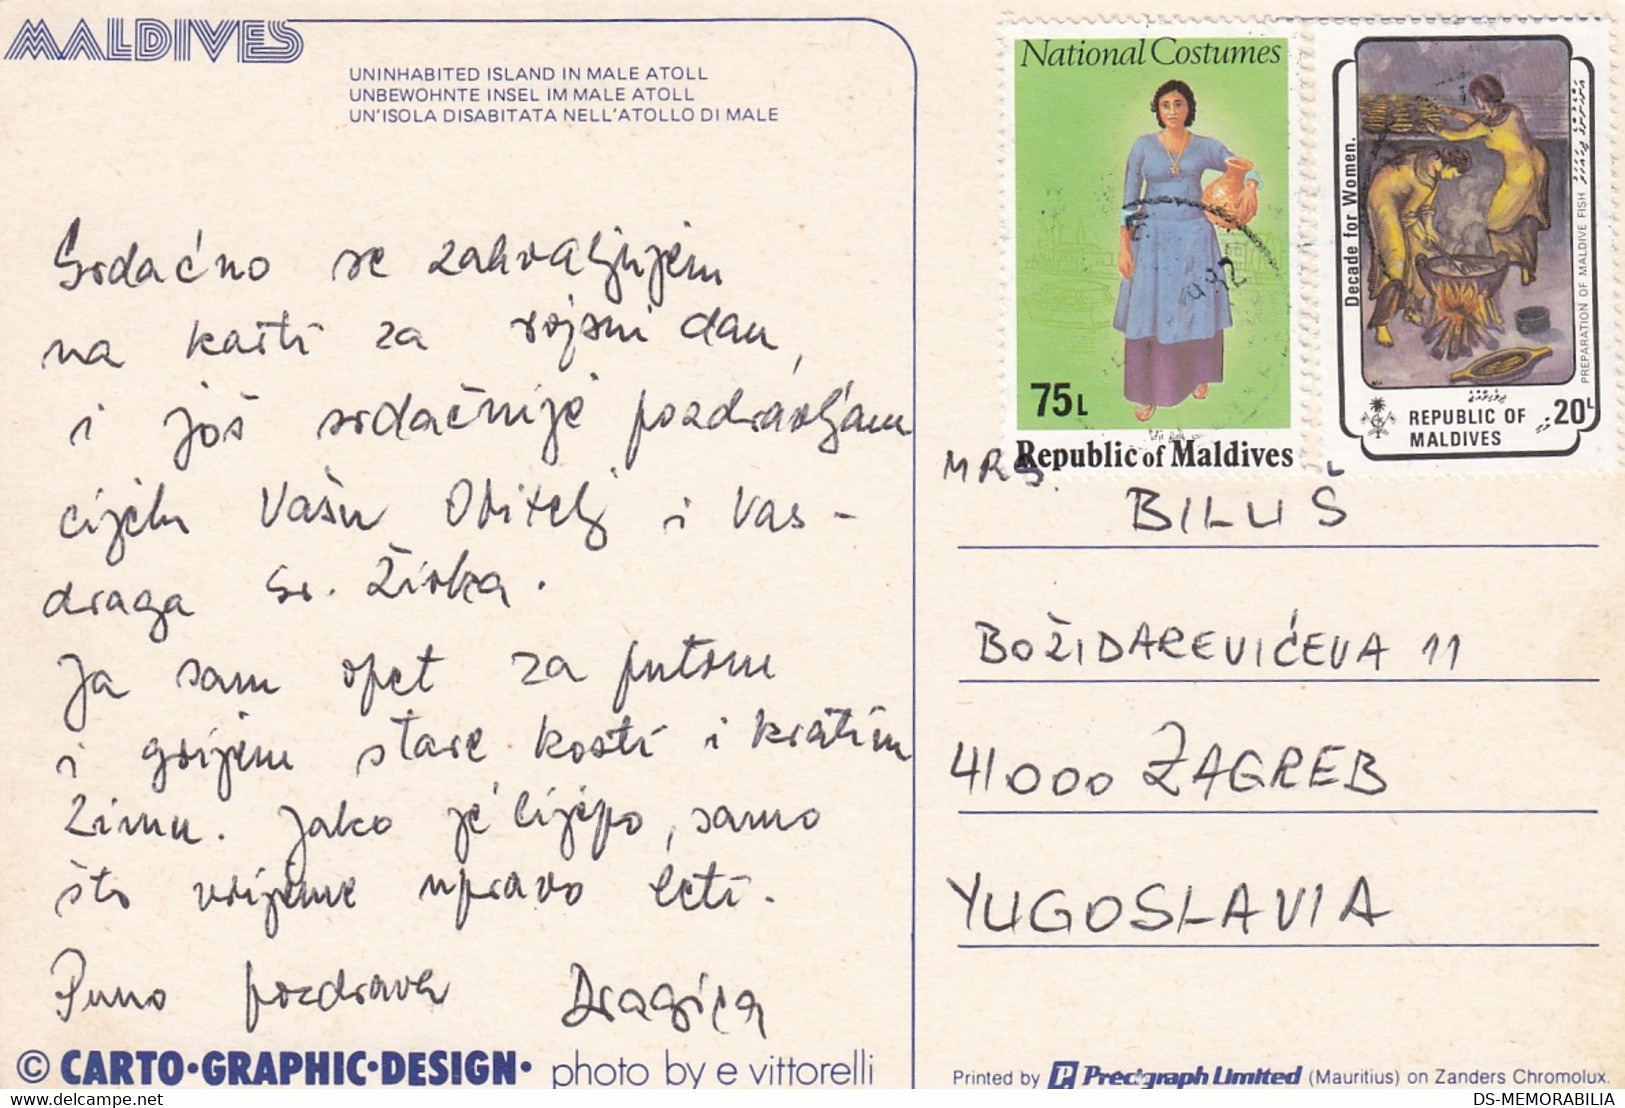 MALDIVES
UNINHABITED ISLAND IN MALE ATOLL
UNBEWOHNTE INSEL IM MALE ATOLL
UN'ISOLA DISABITATA NELL'ATOLLO DI MALE
Srdačno se zahvaljujem
na karti za rojsni dan,
i još srdačnije pozdravljam
cijelu Vašu Obitelj i Vas-
draga Gr. Živka.
Ja sam opet za putom
i grijem stare kosti i kratim
zimu. Jako je lijepo, samo
što vrijeme upravo leti.
Puno pozdrava Dragica
© CARTO•GRAPHIC•DESIGN• photo by e vittorelli
National Costumes
75L
Republic of Maldives
Decade for Women.
PREPARATION OF MALDIVE FISH
REPUBLIC OF MALDIVES
20L
MRS.
BILUŠ
BOŽIDAREVIĆEVA 11
41000 ZAGREB
YUGOSLAVIA
Printed by Precigraph Limited (Mauritius) on Zanders Chromolux.
DS-MEMORABILIA